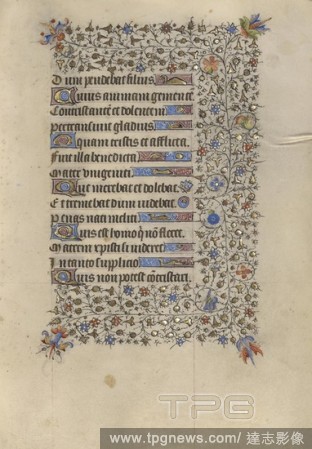 Dum pendebat filius.
Cuius animam gementem
Contristantem et dolentem
Pertransivit gladius
O quam tristis et afflicta.
Fuit illa benedicta
Mater unigeniti
Que merebat et dolebat
Et tremebat dum videbat
Penas nati incliti
Quis est homo qui nō fleret.
Matrem xpisti si videret
In tanto supplicio
Quis non potest cōtristari.
TPG
www.tpgnews.com/ 達志影像